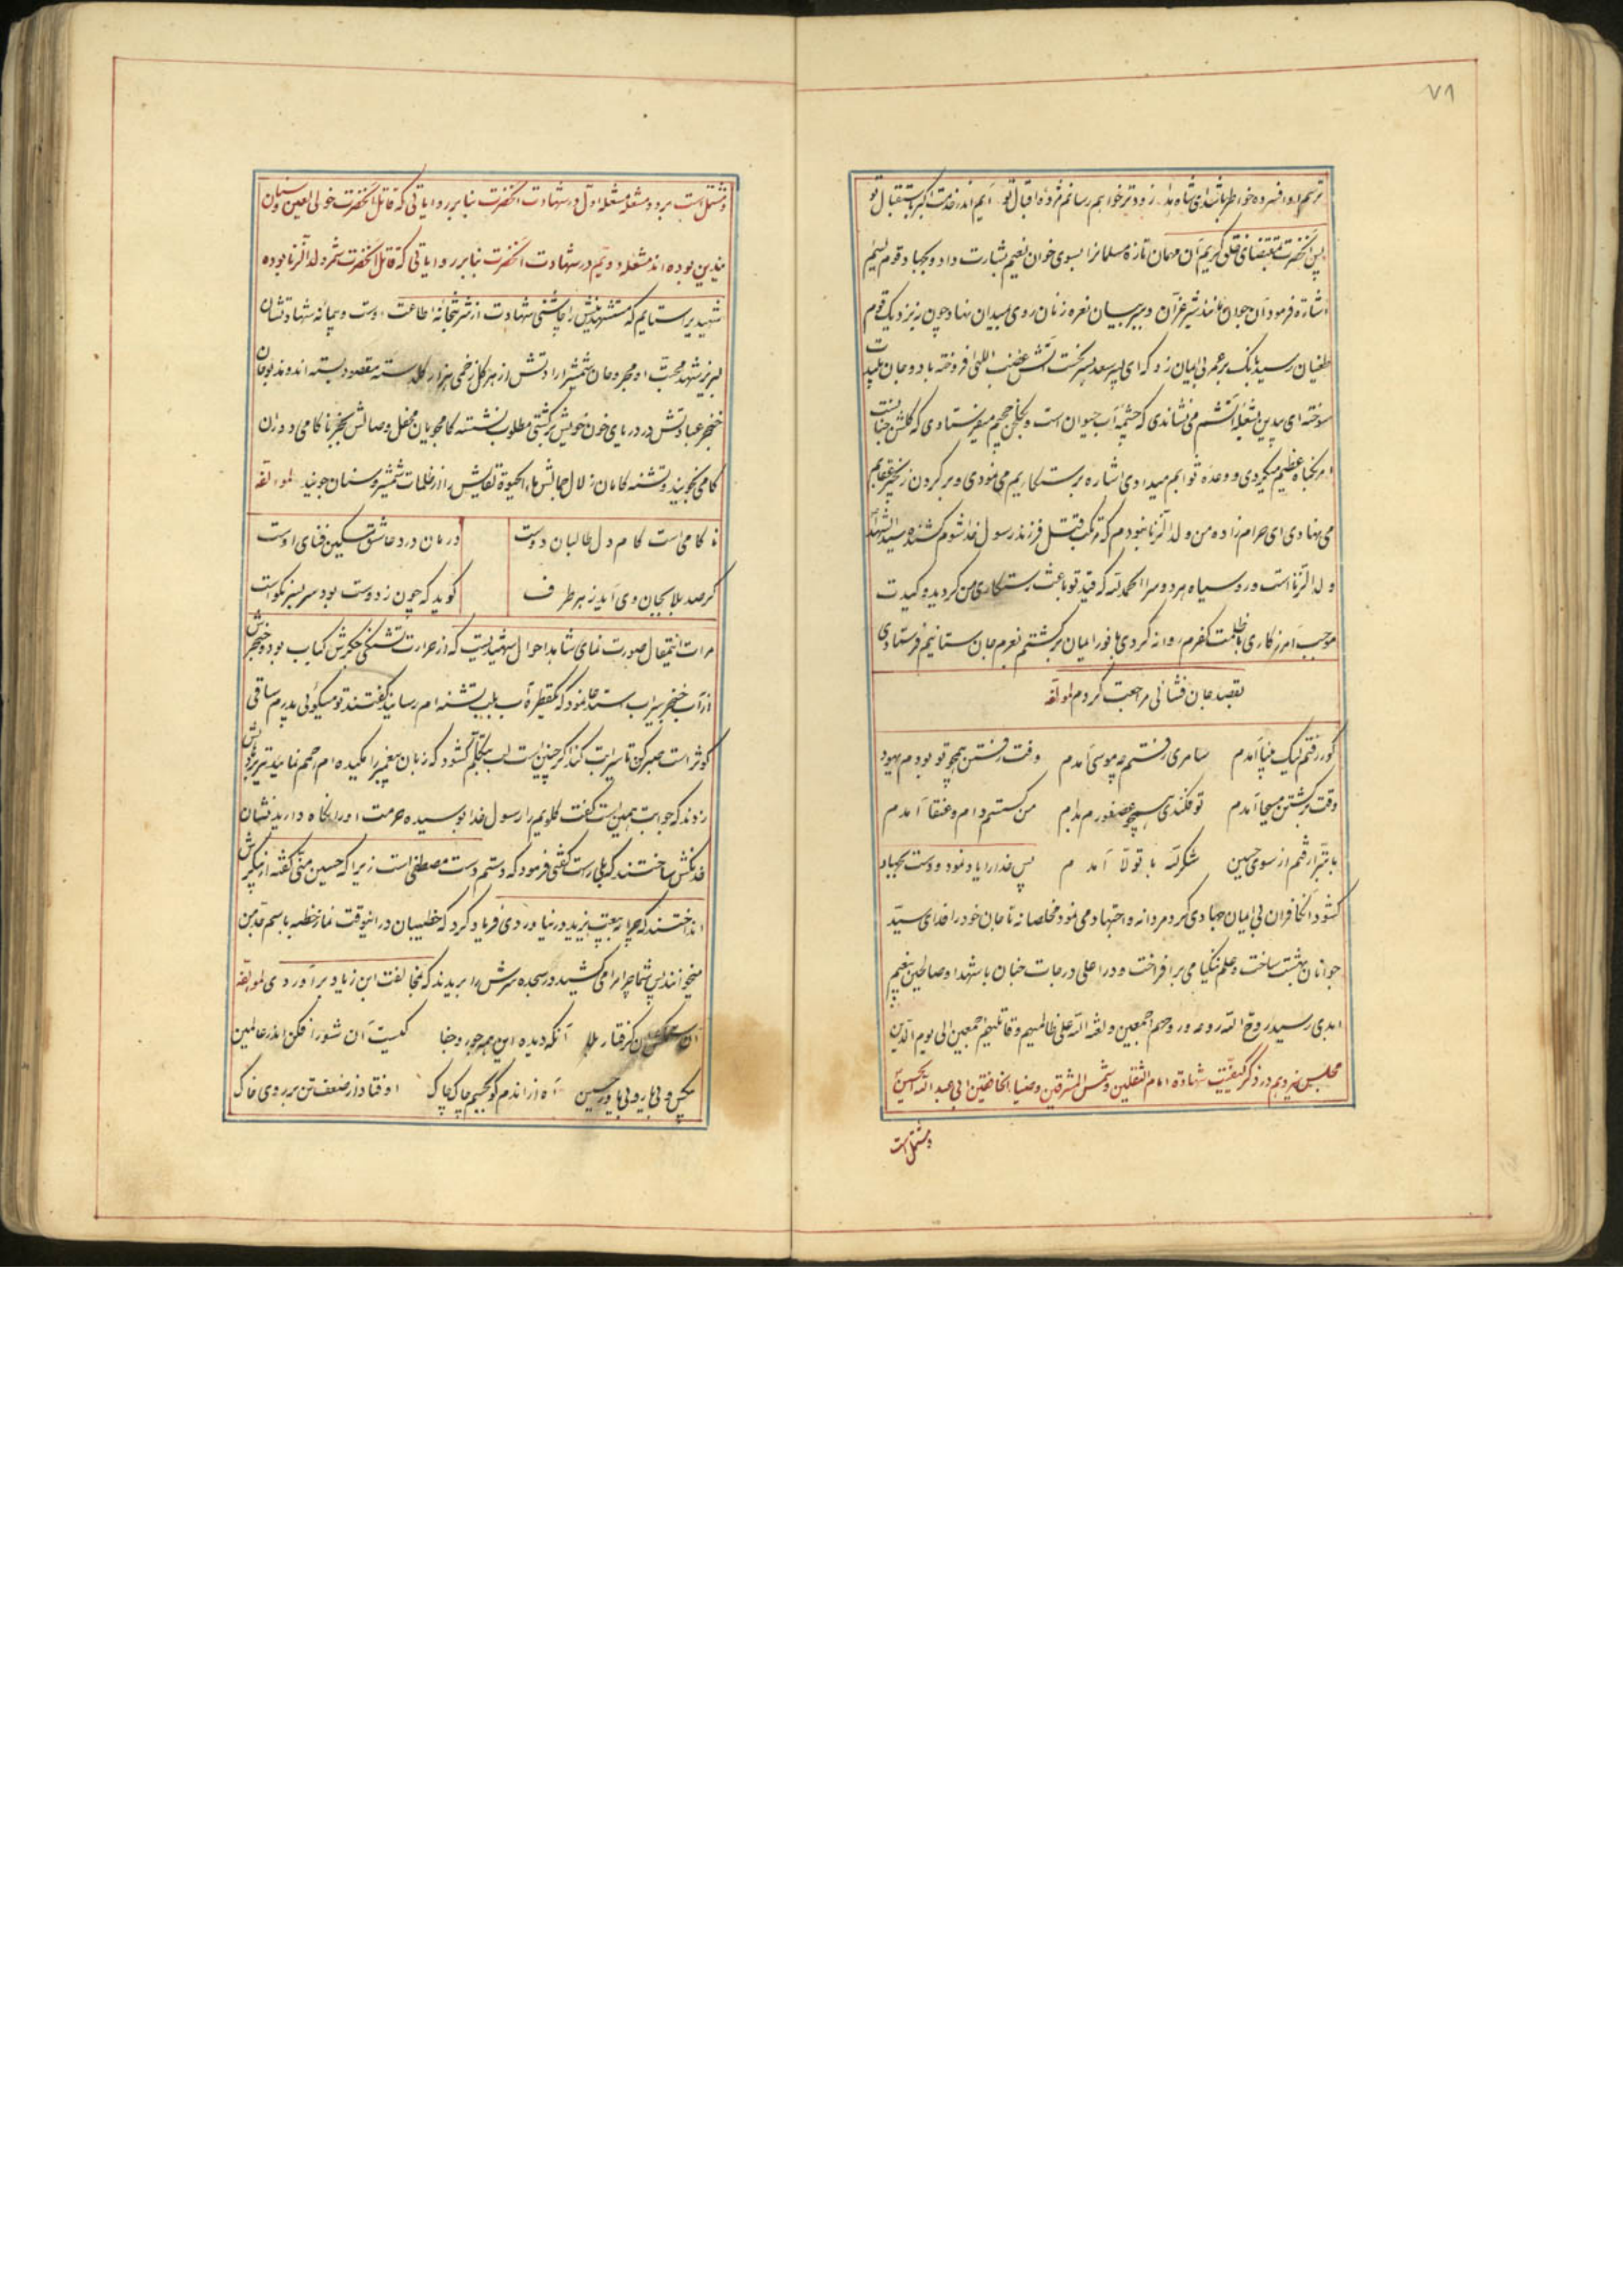 ۷۸
ترسم او افسرده خواطر باشد ای شاه هدا زودتر خواهم رسانم مژدهٔ اقبال تو آیم اندر خدمت اکبر باستقبال تو
پس آنحضرت بمقتضای خلق کریم آن مهمان تازه مسلمانرا بسوی خوان نعیم بشارت داد و بجهاد قوم لئیم
اشاره فرمود آن جوان مانند شیر غرّان و ببر بیان نعره زنان روی میدان نهاد چون بنزدیک قوم
طغیان رسید بانک بر عمر بی ایمان زد که ای پسر سعد بدبخت آتش غضب الهی افروخته باد و جان پلیدت
سوخته ای بیدین بشعلهٔ آتشم می نشاندی که چشمه آب حیوان است و بگلخن جحیم میفرستادی که گلشن جنانست
امر بگناه عظیم میکردی و وعده ثوابم میدادی اشاره برستگاریم می نمودی و بر گردن زنجیر عقابم
می نهادی ای حرام زاده من ولد الزنا نبودم که مرتکب قتل فرزند رسول خدا شوم کشنده سید الشهدا
ولد الزنا است و رو سیاه هر دو سرا الحمد لله که قید تو باعث رستکاری من کردید و کیدت
موجب آمرزکاری با ظلمت کفرم روانه کردی با نور ایمان برگشتم بعزم جان ستانیم فرستادی
بقصد جان فشانی مراجعت کردم لمؤلفه
کور رفتم لیک بینا آمدم سامری رفتم چو موسی آمدم وقت رفتن همچو تو بودم یهود
وقت برگشتن مسیحا آمدم تو فکندی همچو عصفورم بدام من گسستم دام و عنقا آمدم
با تبرّا رفتم از سوی حسین شکر لله با تولّا آمدم پس خدا را یاد نمود و دست بجهاد
کشود با کافران بی ایمان جهادی کرد مردانه و اجتهاد می نمود مخلصانه تا جان خود را فدای سید
جوانان بهشت ساخت و علم نیکنامی برافراخت و در اعلی درجات جنان با شهدا و صالحین بنعیم
ابدی رسید روح الله روحه و روحهم اجمعین و لعنة الله علی ظالمیهم و قاتلیهم اجمعین الی یوم الدین
مجلس در ذکر کیفیت شهادة امام الثقلین و شمس المشرقین و ضیاء الخافقین ابی عبد الله الحسین
و مشتمل است
و مشتمل است بر دو مشعله مشعله اول در شهادت آنحضرت بنا بر روایاتی که قاتل آنحضرت خولی لعین و سنان
بیدین بوده اند مشعله دویم در شهادت آنحضرت بنا بر روایاتی که قاتل آنحضرت شمر ولد الزنا بوده
شهیدیرا ستایم که مستشهدینش را چاشنی شهادت از شربتخانه اطاعت اوست و پیمانه شهادتشان
لبریز شهد محبت او مجروحان شمشیر ارادتش از هر گل زخمی هزار گلدسته مقصود بسته اند و مذبوحان
خنجر عبادتش در دریای خون خویش بر کشتی مطلوب نشسته کامجویان محفل وصالش بجز ناکامی در دل
کامی نجویند و تشنه کامان زلال جمالش ماء الحیوة بقایش را از ظلمات شمشیر و سنان جویند لمؤلفه
ناکامی است کام دل طالبان دوست درمان درد عاشق مسکین فنای اوست
گر صد بلا بجان وی آید ز هر طرف گوید که چون ز دوست بود سر بسر نکوست
مرآت انتقال صورت نمای شاهد احوال شهیدیست که از حرارت تشنگی جگرش کباب بود و خنجرش
از آب خنجر سیراب استدعا نمود که یکقطره آب بلب تشنه ام رسانید گفتند تو میگوئی پدرم ساقی
کوثر است صبر کن تا سیرابت کند اگر چنین است لب بتکلم گشود که زبان پیغمبر را مکیده ام رحم نمائید تیر بر دهانش
زدند که جوابت همین است گفت گلویم را رسول خدا بوسیده حرمت او را نگاه دارید نشان
خدنگش ساختند که بلی راست گفتی فرمود که دستم دست مصطفی است زیرا که حسین منی گفته از پیکرش
انداختند که چرا به بیعت یزید در نیاوردی فریاد کرد که خطیبان در اینوقت نماز خطبه باسم جد من
میخوانند پس شما چرا مرا می کشید در سجده سرش را بریدند که بمخالفت ابن زیاد برآوردی لمؤلفه
آن گرفتار بلا آنکه دیده این همه جور و جفا کیست آن شور افکن اندر عالمین
بیکس و بی یار و بی یاور حسین آه از اندم کو بجسم چاک چاک اوفتاد از ضعف تن بر روی خاک